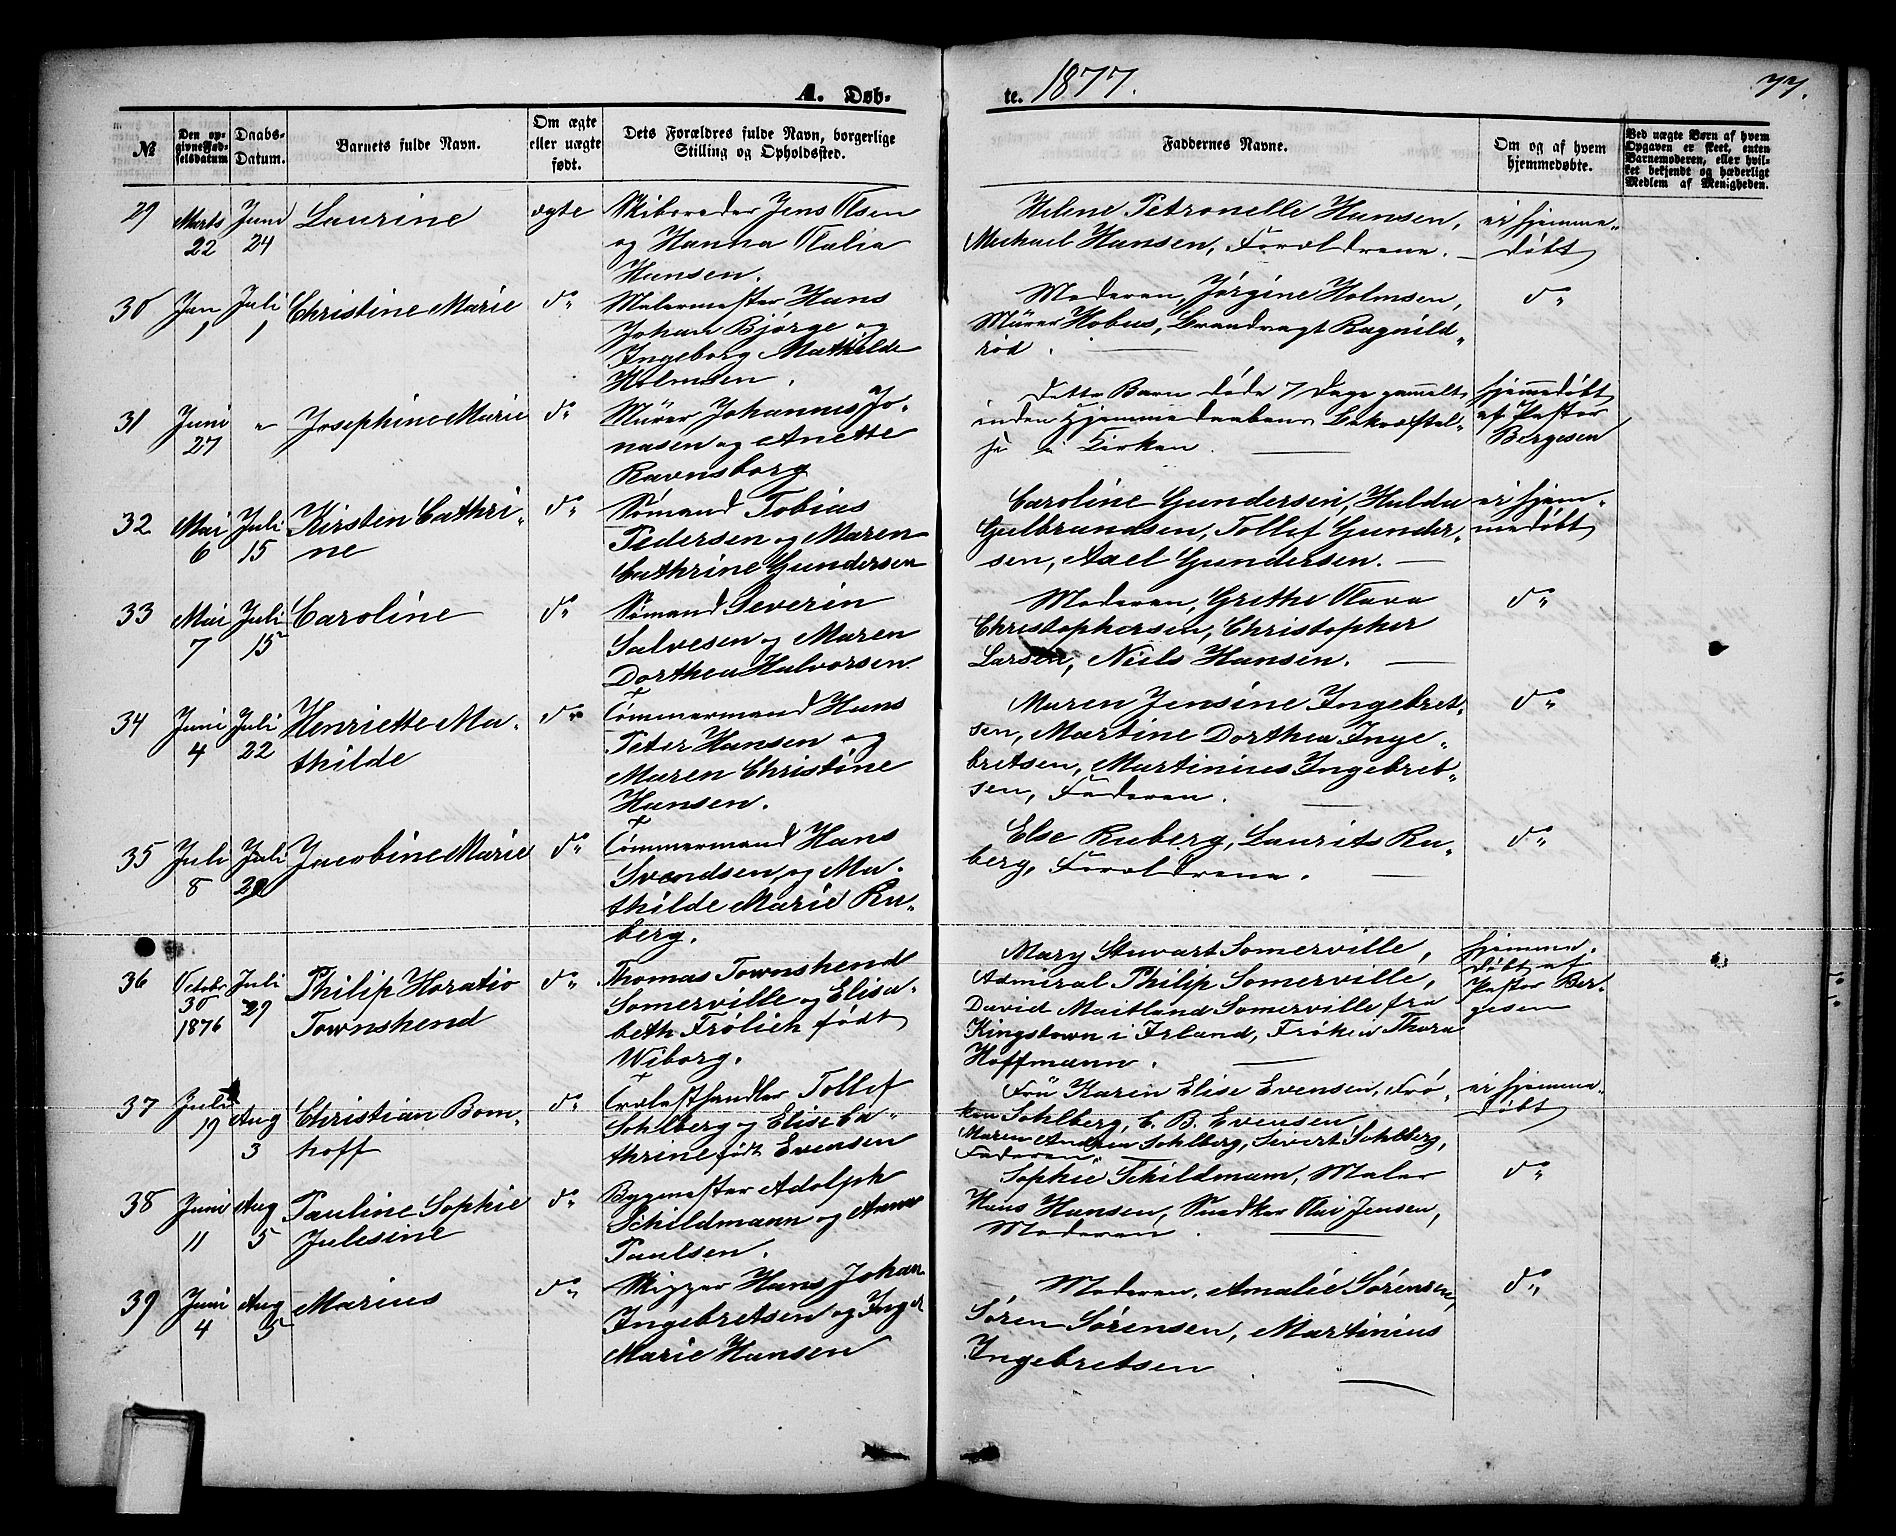 A. Døb-
te. 1877.
77.
№
Den op-
givne Fød-
selsdatum
Daabs-
Datum.
Barnets fulde Navn.
Om ægte
eller uægte
født.
Dets Forældres fulde Navn, borgerlige
Stilling og Opholdssted.
Faddernes Navne.
Om og af hvem
hjemmedøbte.
Ved uægte Børn af hvem
Opgaven er skeet, enten
Barnemoderen, eller hvil-
ket bekjendt og hæderligt
Medlem af Menigheden.
29
Marts
22
Juni
24
Laurine
ægte
Skibsreder Jens Olsen
og Hanna Olalia
Hansen.
Helene Petronelle Hansen,
Michael Hansen, Forældrene.
ei hjemme-
døbt
30
Jan
1
Juli
1
Christine Marie
do
Malermester Hans
Johan Bjørge og
Ingeborg Mathilde
Holmsen.
Moderen, Jørgine Holmsen,
Murer Hobus, Brandvagt Ragnild-
rød.
do
31
Juni
27
"
Josephine Marie
do
Murer Johannes Jo-
nasen og Anette
Ravnsborg
Dette Barn døde 7 Dage gammelt
inden Hjemmedaabens Bekræftel-
se i Kirken.
hjemmedøbt
af Pastor
Børgesen
32
Mai
6
Juli
15
Kirsten Cathri-
ne
do
Sømand Tobias
Pedersen og Maren
Cathrine Gundersen
Caroline Gundersen, Hulda
Gulbrandsen, Tollef Gunder-
sen, Axel Gundersen.
ei hjem-
medøbt
33
Mai
7
Juli
15
Caroline
do
Sømand Severin
Salvesen og Maren
Dorthea Halvorsen
Moderen, Grethe Olava
Christophersen, Christopher
Larsen, Niels Hansen.
do
34
Juni
4
Juli
22
Henriette Ma-
thilde
do
Tømmermand Hans
Peter Hansen og
Maren Christine
Hansen.
Maren Jensine Ingebret-
sen, Martine Dorthea Inge-
bretsen, Martinius Ingebret-
sen, Faderen.
do
35
Juli
8
Juli
29
Jacobine Marie
do
Tømmermand Hans
Svendsen og Ma-
thilde Marie Ru-
berg.
Else Ruberg, Laurits Ru-
berg, Forældrene.
do
36
Octobr
30
1876
Juli
29
Philip Horatio
Townshend
do
Thomas Townshend
Somerville og Elisa-
beth Frølich født
Wiborg.
Mary Stuvart Somerville,
Admiral Philip Somerville,
David Maitland Somerville fra
Kingstown i Irland, Frøken Thora
Hoffmann.
hjemme-
døbt af
Pastor Bør-
gesen
37
Juli
19
Aug
3
Christian Bom-
hoff
do
Trælasthandler Tollef
Sohlberg og Elise Ca-
thrine født Evensen
Frü Karen Elise Evensen, Frø-
ken Sohlberg, C. B. Evensen
Maren Andrea Sohlberg, Sivert Sohlberg,
Faderen.
ei hjemme-
døbt
38
Juni
11
Aug
5
Pauline Sophie
Julesine
do
Bygmester Adolph
Schildmann og Anna
Paulsen.
Sophie Schildmann, Maler
Hans Hansen, Snedker Olai Jensen,
Moderen.
do
39
Juni
4
Aug
5
Marius
do
Skipper Hans Johan
Ingebretsen og Inger
Marie Hansen
Moderen, Amalie Sørensen,
Søren Sørensen, Martinius
Ingebretsen
do